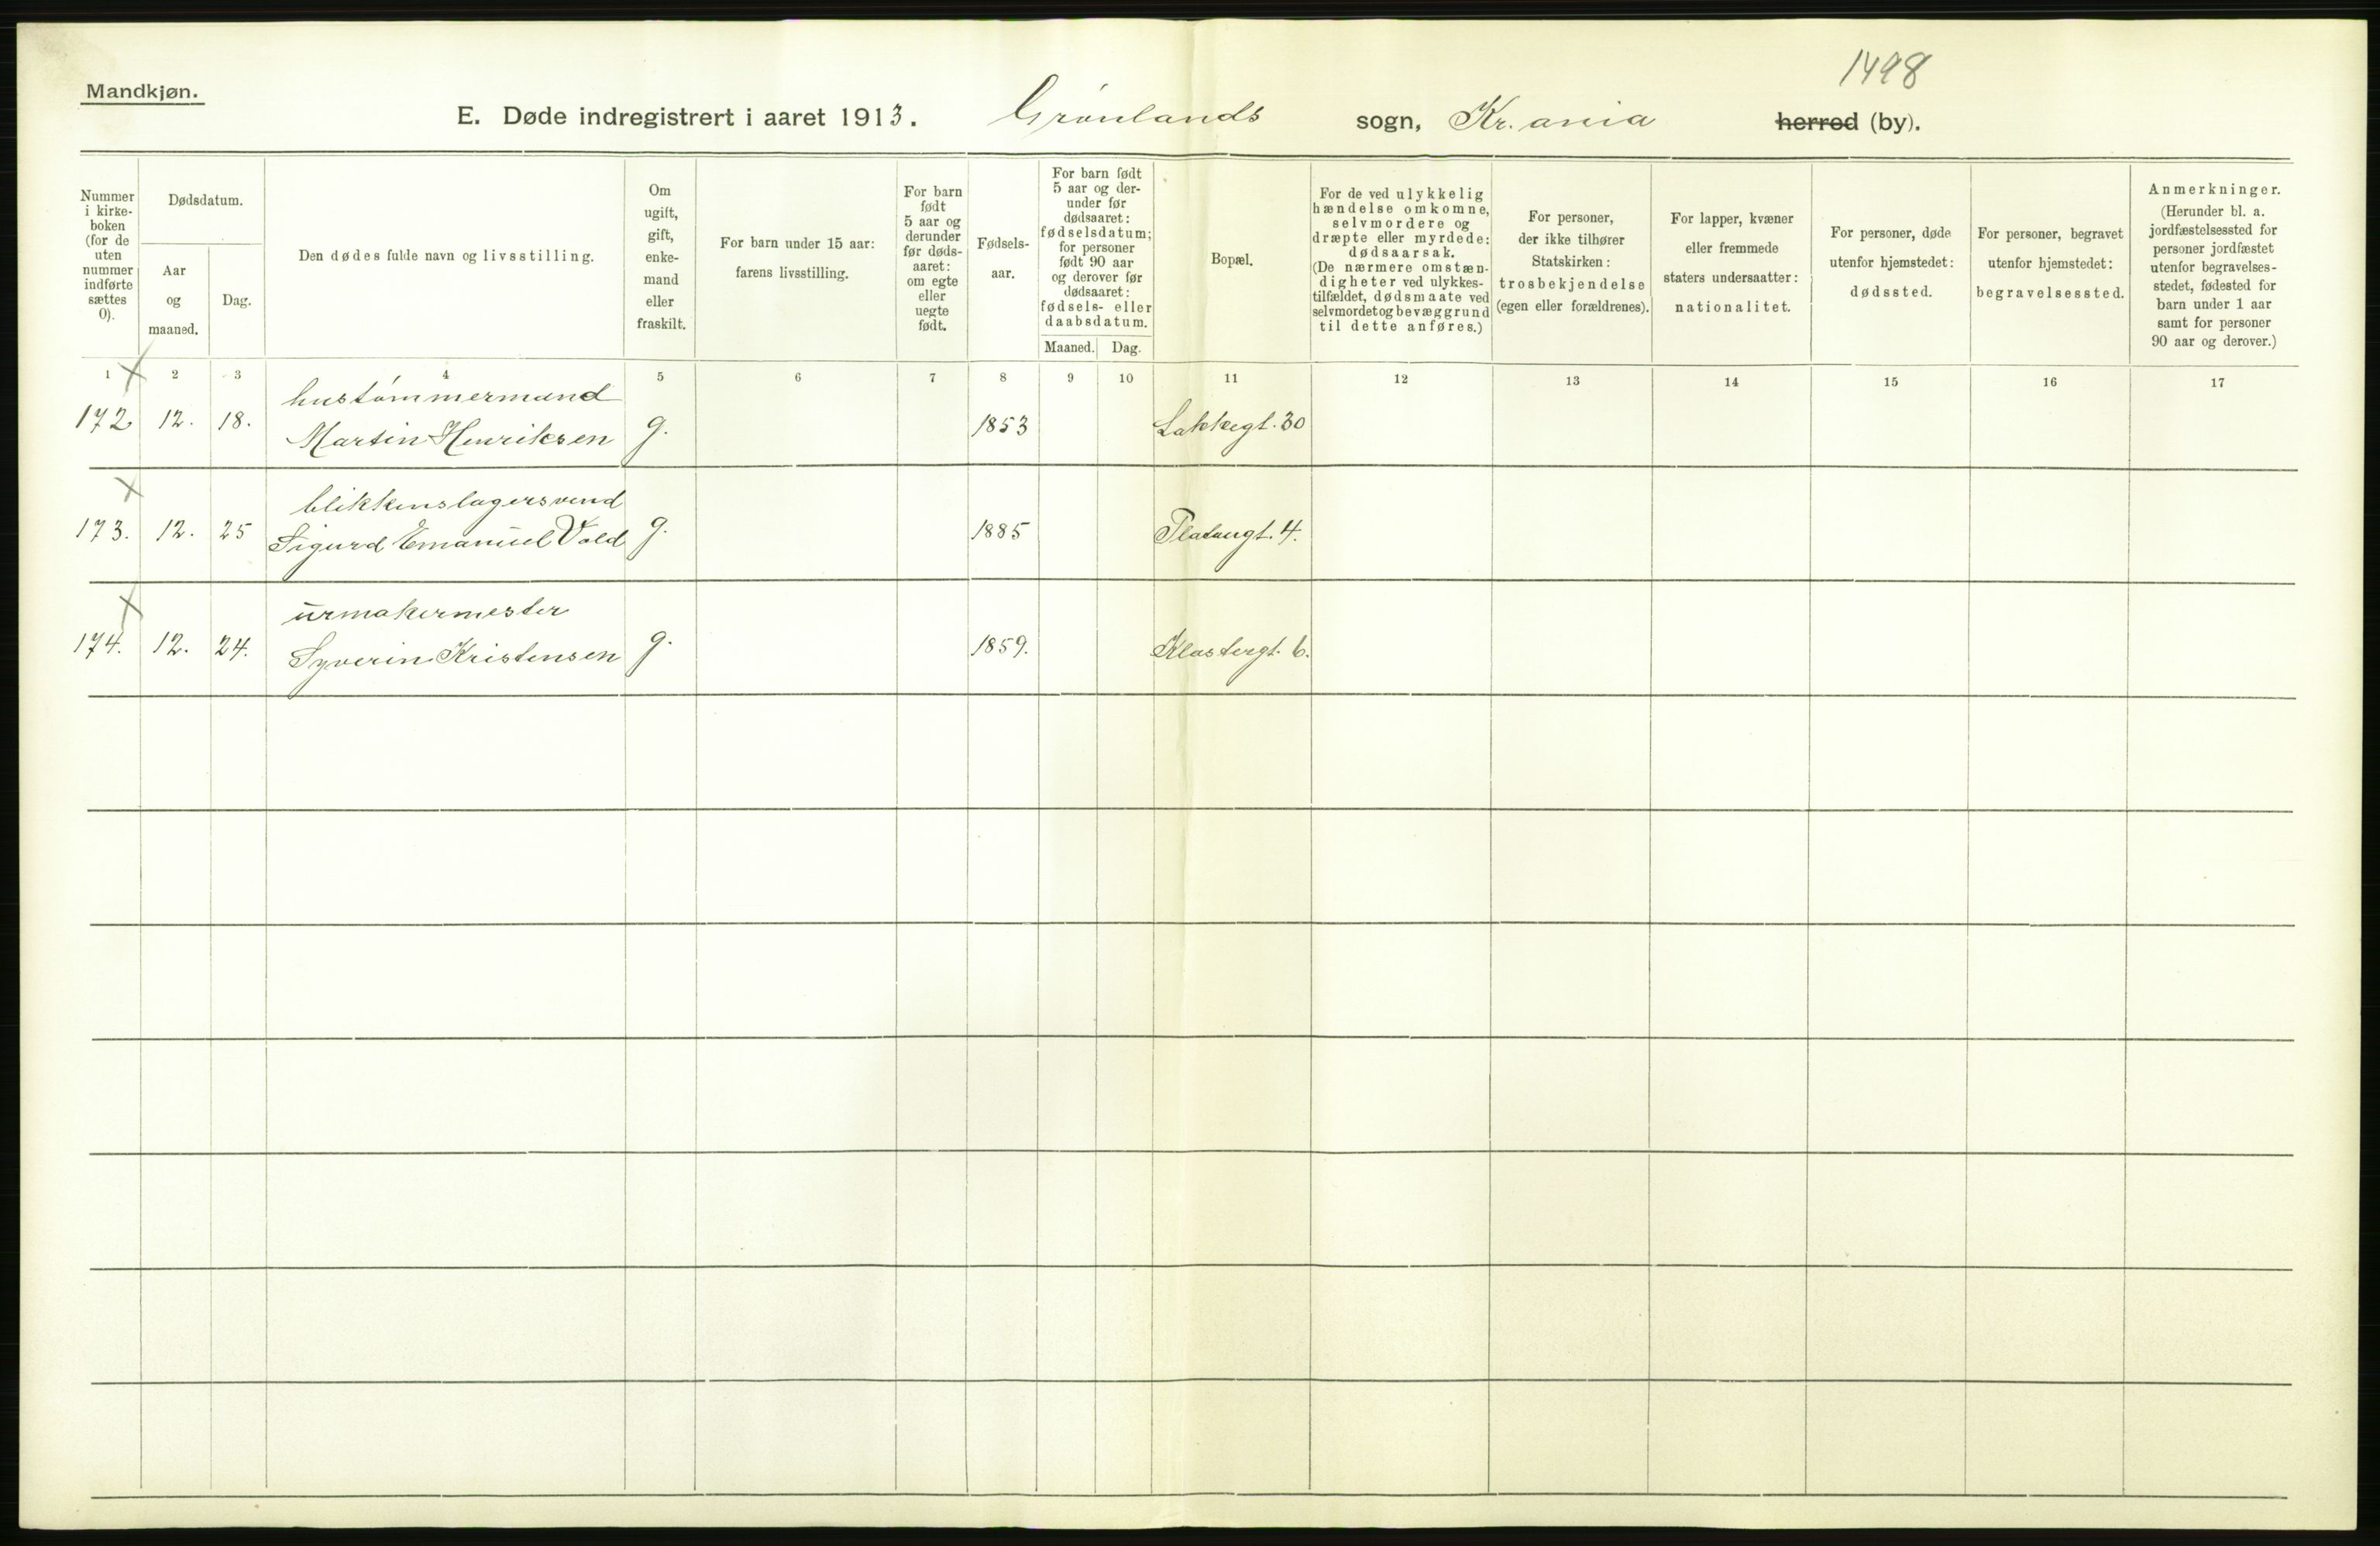 1498
Mandkjøn.
E. Døde indregistrert i aaret 1913. Grønlands sogn, Kr.ania herred (by).
Nummer i kirke- boken (for de uten nummer indførte sættes 0).
Dødsdatum.
Aar og maaned.
Dag.
Den dødes fulde navn og livsstilling.
Om ugift, gift, enke- mand eller fraskilt.
For barn under 15 aar: farens livsstilling.
For barn født 5 aar og derunder før døds- aaret: om egte eller uegte født.
Fødsels- aar.
For barn født 5 aar og der- under før dødsaaret: fødselsdatum; for personer født 90 aar og derover før dødsaaret: fødsels- eller daabsdatum.
Maaned. Dag.
Bopæl.
For de ved ulykkelig hændelse omkomne, selvmordere og dræpte eller myrdede: dødsaarsak. (De nærmere omstæn- digheter ved ulykkes- tilfældet, dødsmaate ved selvmordet og bevæggrund til dette anføres.)
For personer, der ikke tilhører Statskirken: trosbekjendelse (egen eller forældrenes).
For lapper, kvæner eller fremmede staters undersaatter: nationalitet.
For personer, døde utenfor hjemstedet: dødssted.
For personer, begravet utenfor hjemstedet: begravelsessted.
Anmerkninger. (Herunder bl. a. jordfæstelsessted for personer jordfæstet utenfor begravelses- stedet, fødested for barn under 1 aar samt for personer 90 aar og derover.)
1 2 3 4 5 6 7 8 9 10 11 12 13 14 15 16 17
hustømmermand
172 12. 18. Martin Henriksen g. 1853 Lakkegt. 30
blikkenslagersvend
173. 12. 25 Sigurd Emanuel Vold g. 1885 Platougt. 4.
urmakermester
174. 12. 24. Syverin Kristensen g. 1859. Klostergt. 6.